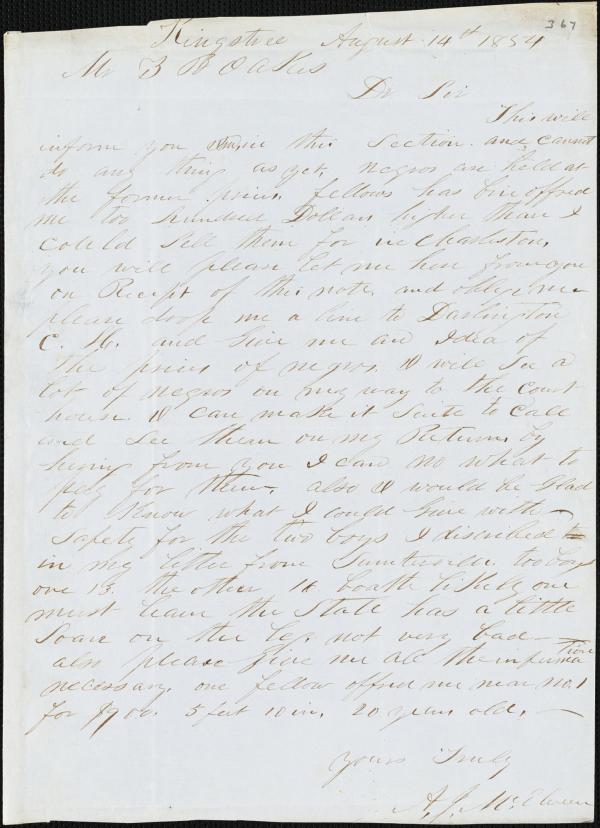 367
Kingstree August 14th 1854
Mr Z B Oakes
Dr Sir
This will
inform you I am in this Section. and cannot
do any thing as yet, negros are held at
the former prices. fellows has bin offred
me too hundred Dollars higher than I
could sell them for in Charleston,
you will please let me hear from you
on Receipt of this note. and oblige me
please drop me a line to Darlington
C. H. and Give me an Idea of
the prices of negros. I will See a
lot of negros on my way to the court
house. I can make it Suite to call
and See them on my Return, by
hering from you I can no what to
pay for them, also I would be Glad
to Know what I could Give with
Safety for the two boys I discribed
in my letter from Sumterville. too boys
one 13. the other 18 boath likely one
must leave the State has a little
Scare on the leg. not very bad
also please Give me all the informa
tion
necessary. one fellow offred me near no. 1
for $900. 5 feet 10 in, 20 years old,
yours Truly
A. J. McElveen